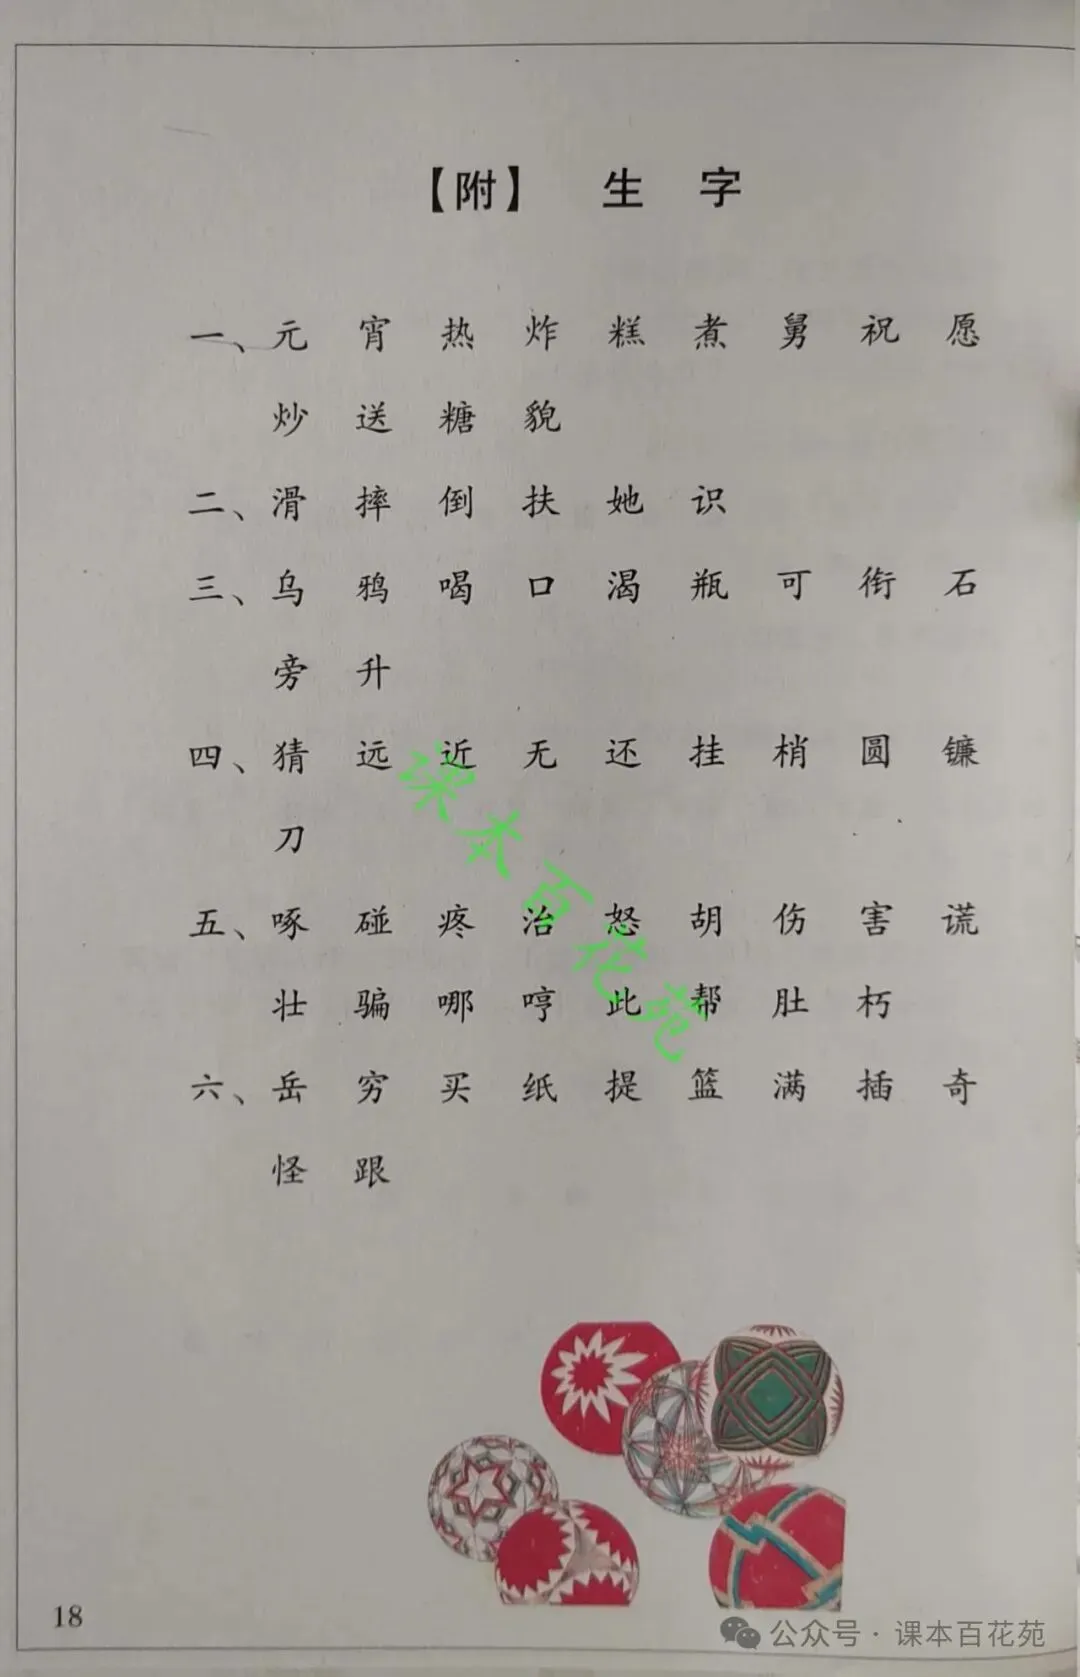 【附】 生 字
一、元 宵 热 炸 糕 煮 舅 祝 愿
炒 送 糖 貌
二、滑 摔 倒 扶 她 识
三、乌 鸦 喝 口 渴 瓶 可 衔 石
旁 升
四、猜 远 近 无 还 挂 梢 圆 镰
刀
五、啄 碰 疼 治 怒 胡 伤 害 谎
壮 骗 哪 哼 此 帮 肚 朽
六、岳 穷 买 纸 提 篮 满 插 奇
怪 跟
课本百花苑
18
公众号·课本百花苑